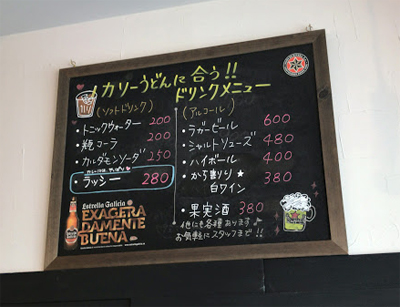 カリーうどんに合う!!
ドリンクメニュー
(ソフトドリンク)
・トニックウォーター 200
・瓶コーラ 200
・カルダモンソーダ 250
・ラッシー 280
Estrella Galicia
EXAGERA
DAMENTE
BUENA
(アルコール)
・ラガービール 600
・シャルトリューズ 480
・ハイボール 400
・からまり★
白ワイン 380
・果実酒 380
他にも各種あります♪
お気軽にスタッフまで!!